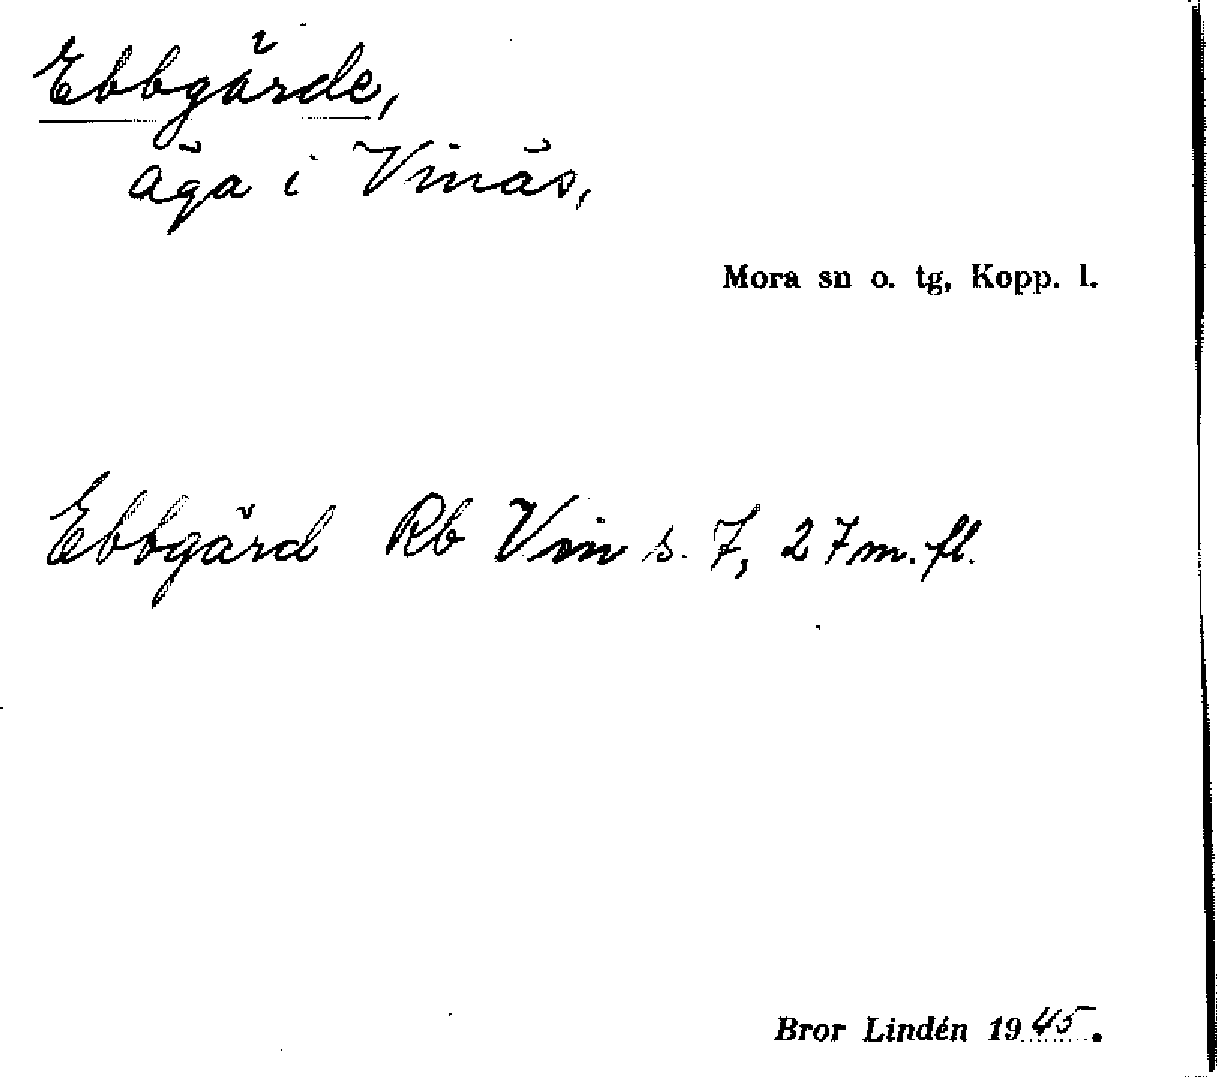 Ebbgärde,
äga i Vinäs,
Mora sn o. tg, Kopp. l.
Ebbgärd Rb Vin s. 7, 27 m. fl.
Bror Lindén 1945.